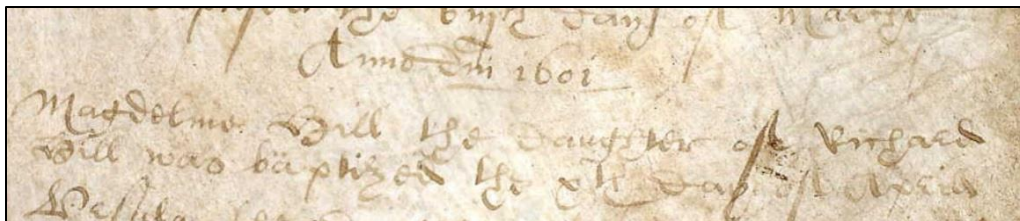 the viijth daye of Marche
Anno Dni 1601
Magdeline Hill the daughter of Richard
Hill was baptized the xth day of Aprill